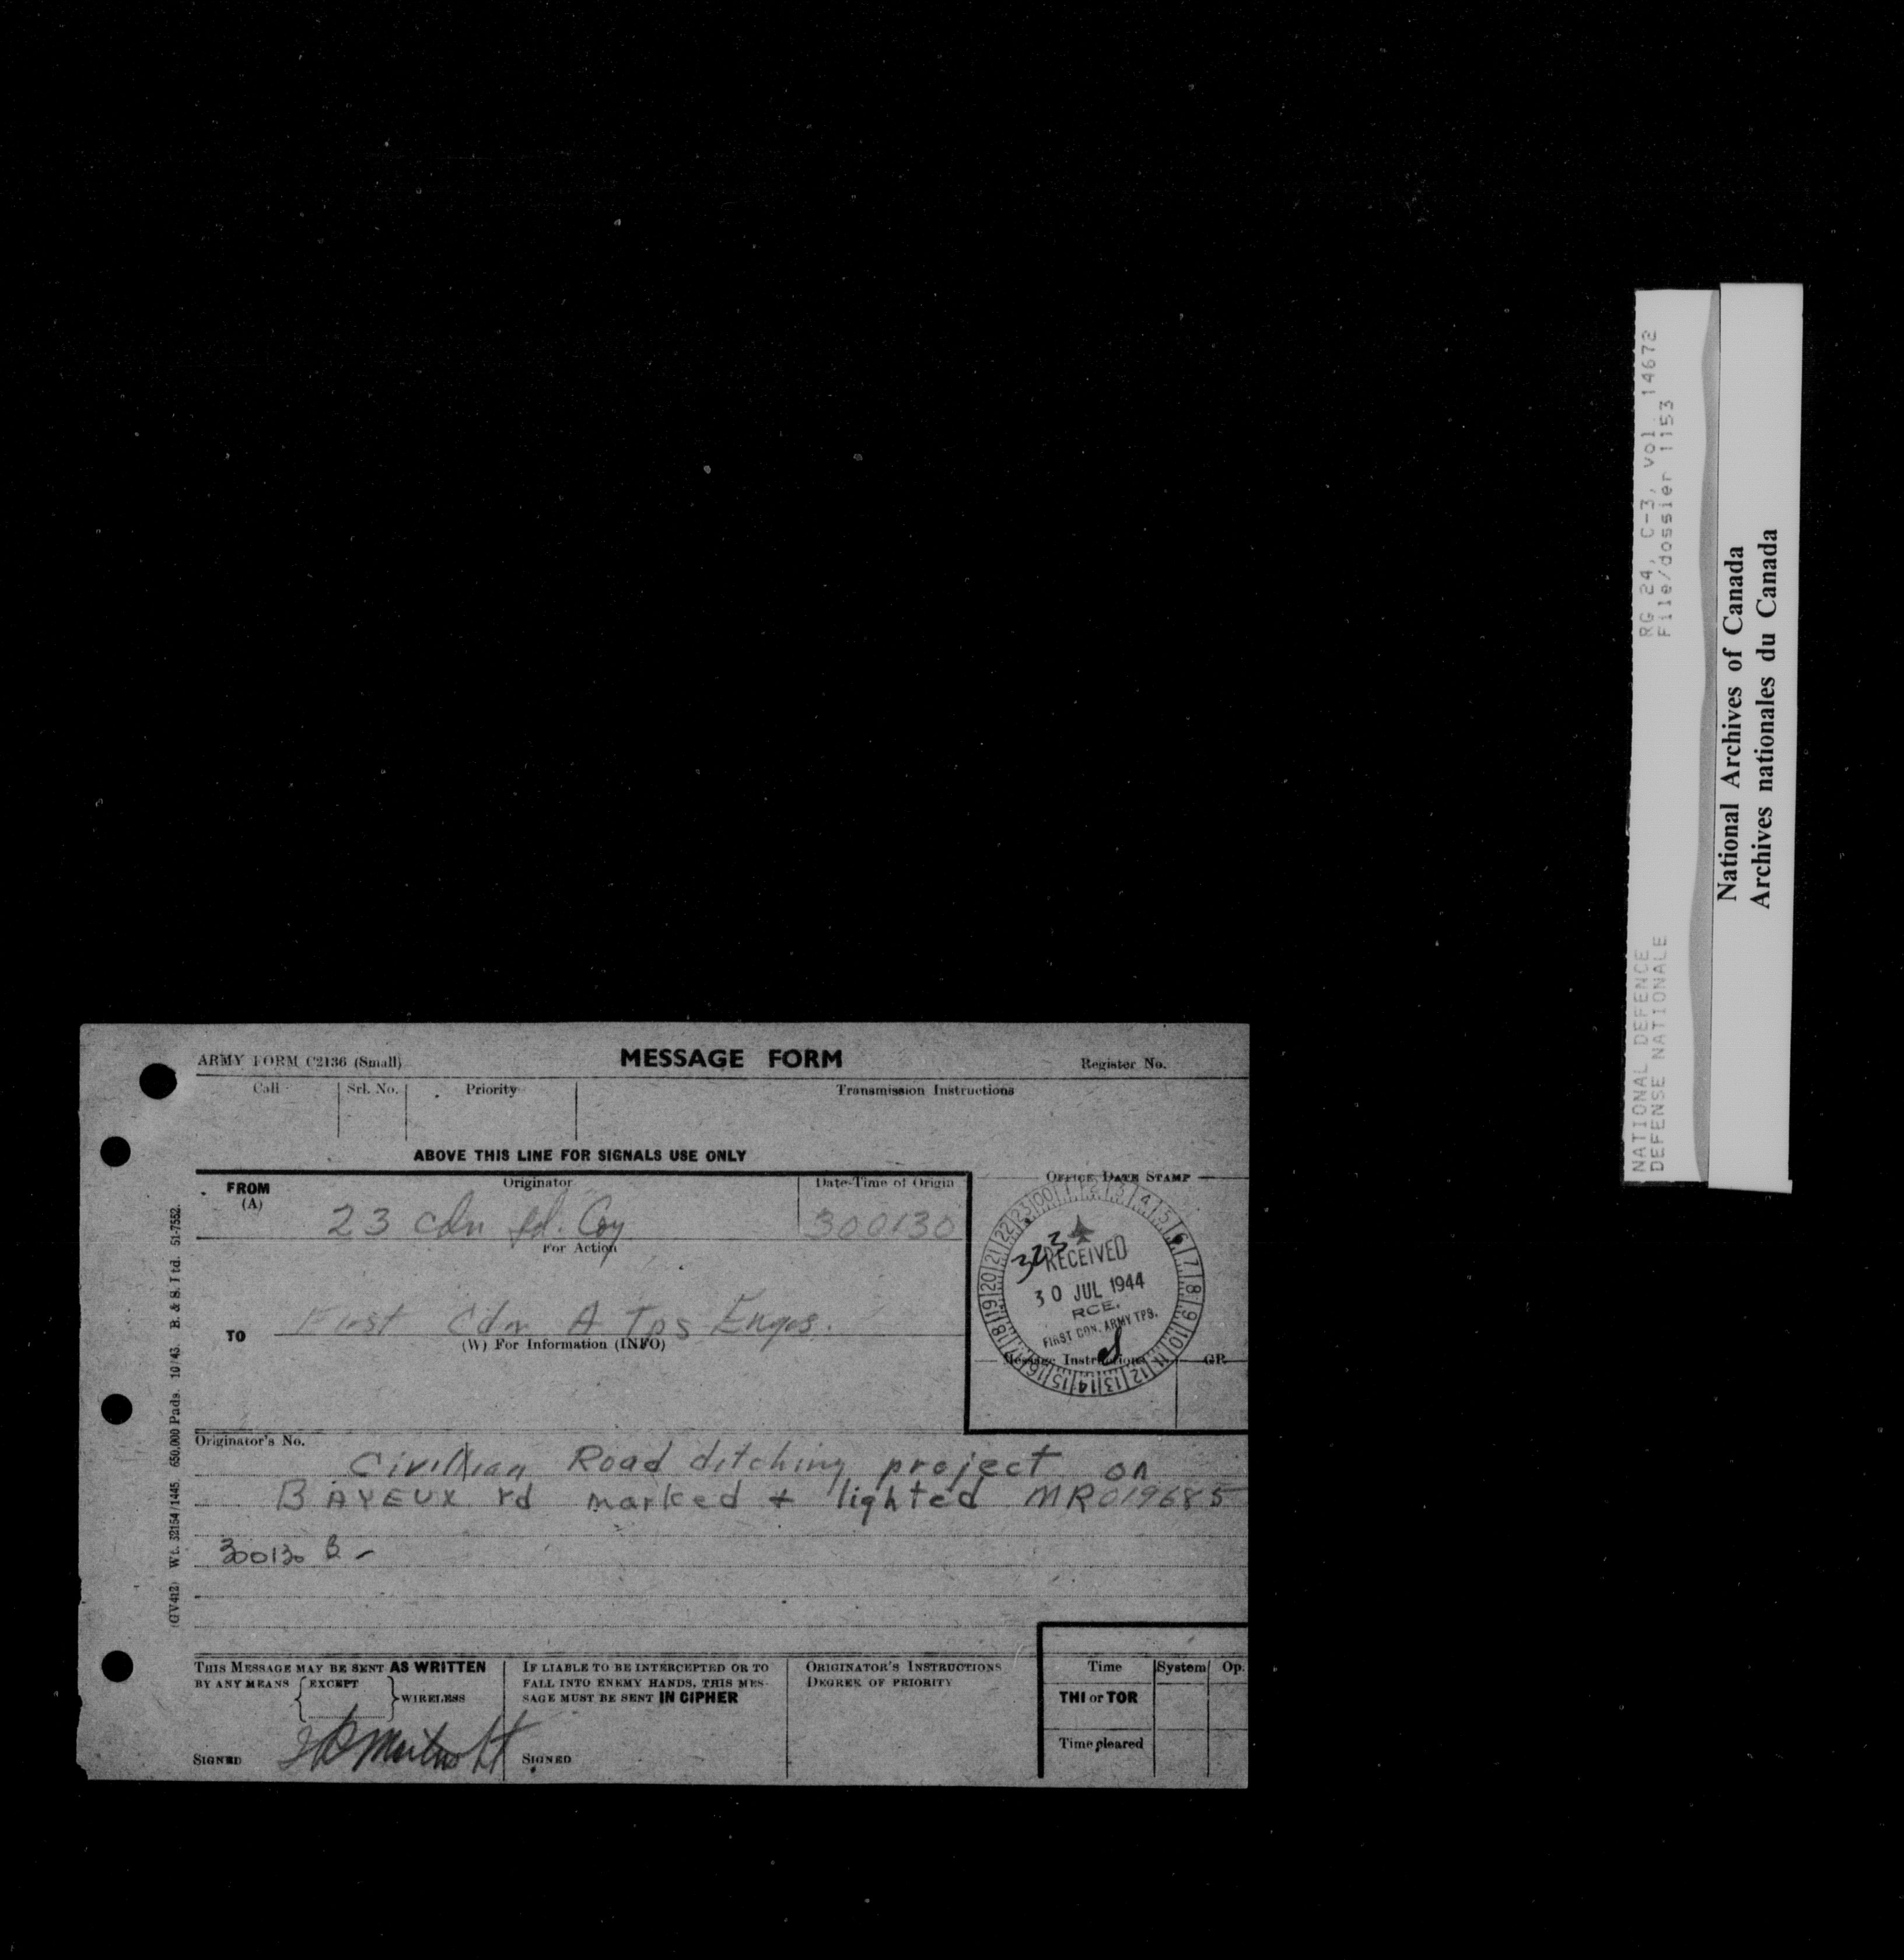 ARMY FORM C2136 (Small)
MESSAGE FORM
Register No.
Call
Srl. No.
Priority
Transmission Instructions
ABOVE THIS LINE FOR SIGNALS USE ONLY
FROM
(A)
Originator
Date-Time of Origin
OFFICE DATE STAMP
23 Cdn fd. Coy
300130
For Action
TO
First Cdn A Tps Engrs.
(W) For Information (INFO)
00 1 2 3 4 5 6 7 8 9 10 11 12 13 14 15 16 17 18 19 20 21 22 23
323
RECEIVED
30 JUL 1944
RCE.
FIRST CDN. ARMY TPS.
Message Instructions
GR
Originator's No.
Civilian Road ditching project on
BAYEUX rd marked + lighted MR019685
300130 B -
THIS MESSAGE MAY BE SENT AS WRITTEN
BY ANY MEANS
EXCEPT
WIRELESS
SIGNED
IF LIABLE TO BE INTERCEPTED OR TO
FALL INTO ENEMY HANDS, THIS MES-
SAGE MUST BE SENT IN CIPHER
SIGNED
ORIGINATOR'S INSTRUCTIONS
DEGREE OF PRIORITY
Time
System
Op.
THI or TOR
Time cleared
(GV412) Wt. 32154/1445. 650,000 Pads. 10/43. B. & S. Ltd. 51-7552.
NATIONAL DEFENCE
DEFENSE NATIONALE
RG 24, C-3, vol. 14672
File/dossier 1153
National Archives of Canada
Archives nationales du Canada